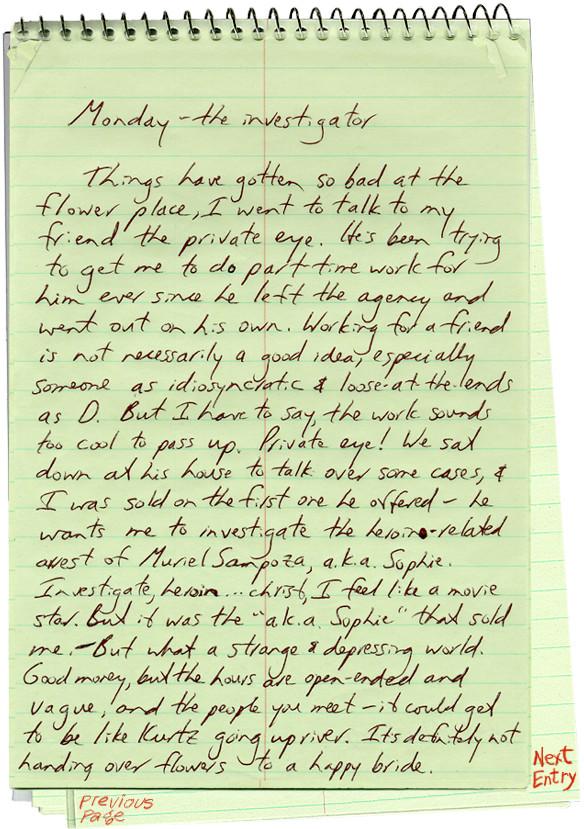 Monday - the investigator
Things have gotten so bad at the
flower place, I went to talk to my
friend the private eye. He's been trying
to get me to do part-time work for
him ever since he left the agency and
went out on his own. Working for a friend
is not necessarily a good idea, especially
someone as idiosyncratic & loose-at-the-ends
as D. But I have to say, the work sounds
too cool to pass up. Private eye! We sat
down at his house to talk over some cases, &
I was sold on the first one he offered - he
wants me to investigate the heroin-related
arrest of Muriel Sampoza, a.k.a. Sophie.
Investigate, heroin... christ, I feel like a movie
star. But it was the "a.k.a. Sophie" that sold
me. - But what a strange & depressing world.
Good money, but the hours are open-ended and
vague, and the people you meet - it could get
to be like Kurtz going upriver. It's definitely not
handing over flowers to a happy bride.
Next
Entry
Previous
Page